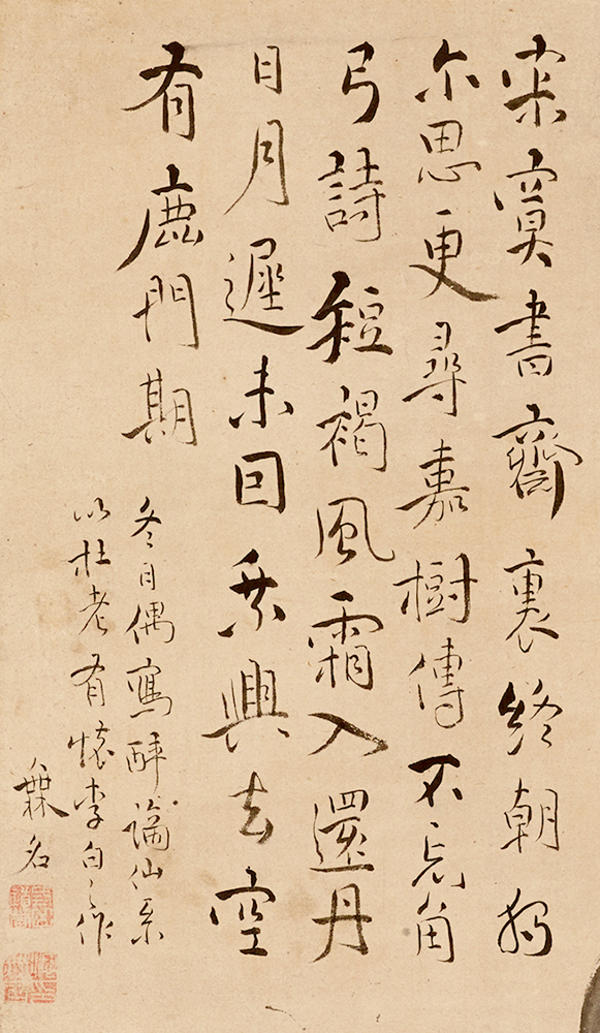 寂寞書齋裏終朝獨
尒思更尋嘉樹傳不忘角
弓詩短褐風霜入還丹
日月遲未因乘興去空
有鹿門期
冬日偶寫醉謫仙系
以杜老有懷李白之作